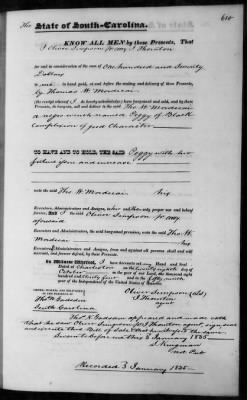 610
The State of South-Carolina.
KNOW ALL MEN by these Presents, That
I Oliver Simpson for Jno J Thornton
for and in consideration of the sum of One hundred and Seventy
Dollars
to me in hand paid, at and before the sealing and delivery of these Presents,
by Thomas W. Mordecai
(the receipt whereof I do hereby acknowledge) have bargained and sold, and by these
Presents, do bargain, sell and deliver to the said Tho W. Mordecai
a negro wench named Peggy of Black
Complexion & good Character
TO HAVE AND TO HOLD, THE SAID Peggy with her
future issue and increase
unto the said Tho. W. Mordecai his
Executors, Administrators and Assigns, to his and their only proper use and behoof
forever. And I the said Oliver Simpson
aforesaid
Executors and Administrators, the said bargained premises, unto the said Tho. W.
Mordecai his
Executors, Administrators and Assigns, from and against all persons shall and will
warrant, and forever defend, by these Presents.
In Witness Whereof, I have hereunto set my Hand and Seal
Dated at Charleston on the
October in the year of our Lord, one thousand eight
hundred and thirty and in the
year of the Independence of the United States of America.
SIGNED, SEALED AND DELIVERED
IN THE PRESENCE OF
Oliver Simpson (LS)
Tho. N. Gadsden
J Thornton
agent
South Carolina
Tho. N. Gadsden appeared and made oath
that he saw Oliver Simpson for J Thornton agent sign seal
and execute this Bill of Sale
Sworn to before me this 3 January 1835.
Recorded 3 January 1835